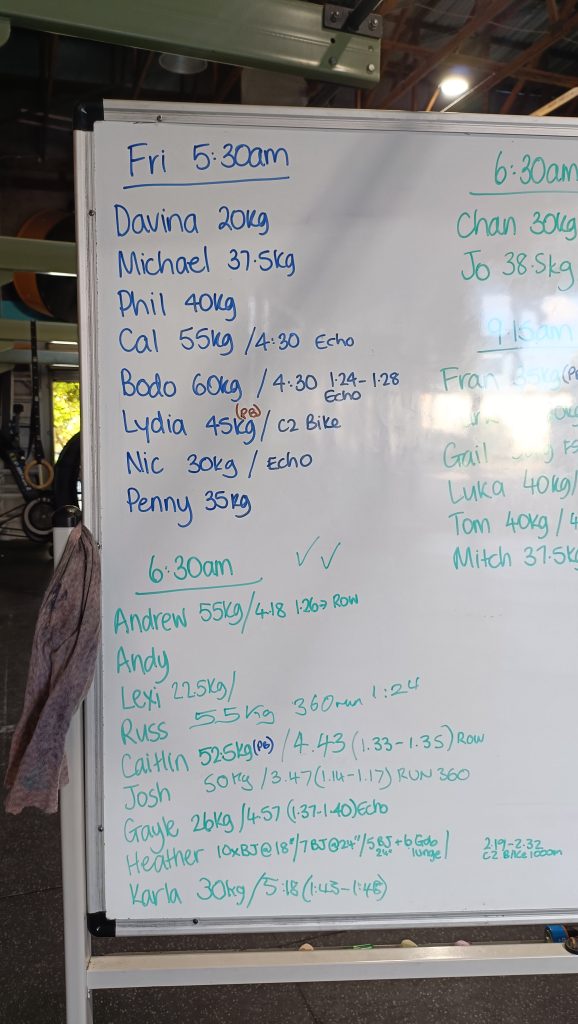 Fri 5:30am
Davina 20kg
Michael 37.5kg
Phil 40kg
Cal 55kg / 4:30 Echo
Bodo 60kg / 4:30 1:24-1:28 Echo
Lydia 45kg (PB) / C2 Bike
Nic 30kg / Echo
Penny 35kg
6:30am ✓✓
Andrew 55kg/4.18 1:26→ Row
Andy
Lexi 22.5kg/
Russ 55kg 360run 1:24
Caitlin 52.5kg (PB) / 4.43 (1.33-1.35) Row
Josh 50kg / 3.47 (1.14-1.17) RUN 360
Gayle 26kg/4.57 (1:37-1:40) Echo
Heather 10xBJ@18"/7BJ@24"/5BJ 24" +6 Gob lunge / 2.19-2.32 C2 Bike 1000m
Karla 30kg/5:18 (1:45-1:48)
6:30am
Chan 30kg
Jo 38.5kg
9:15am
Fran 35kg (P
Gail
Luka 40kg/
Tom 40kg / 4
Mitch 37.5k